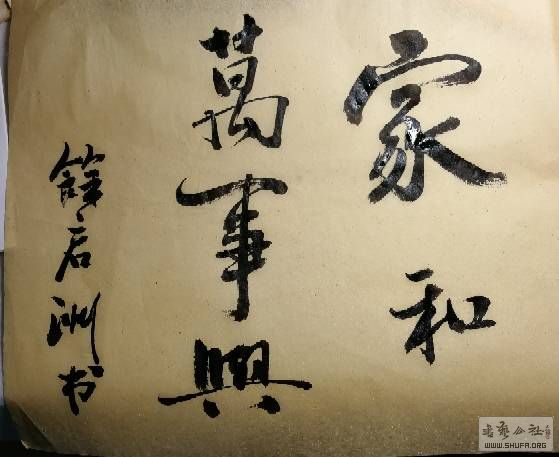 家和
萬事興
君洲书
书艺公社
WWW.SHUFA.ORG